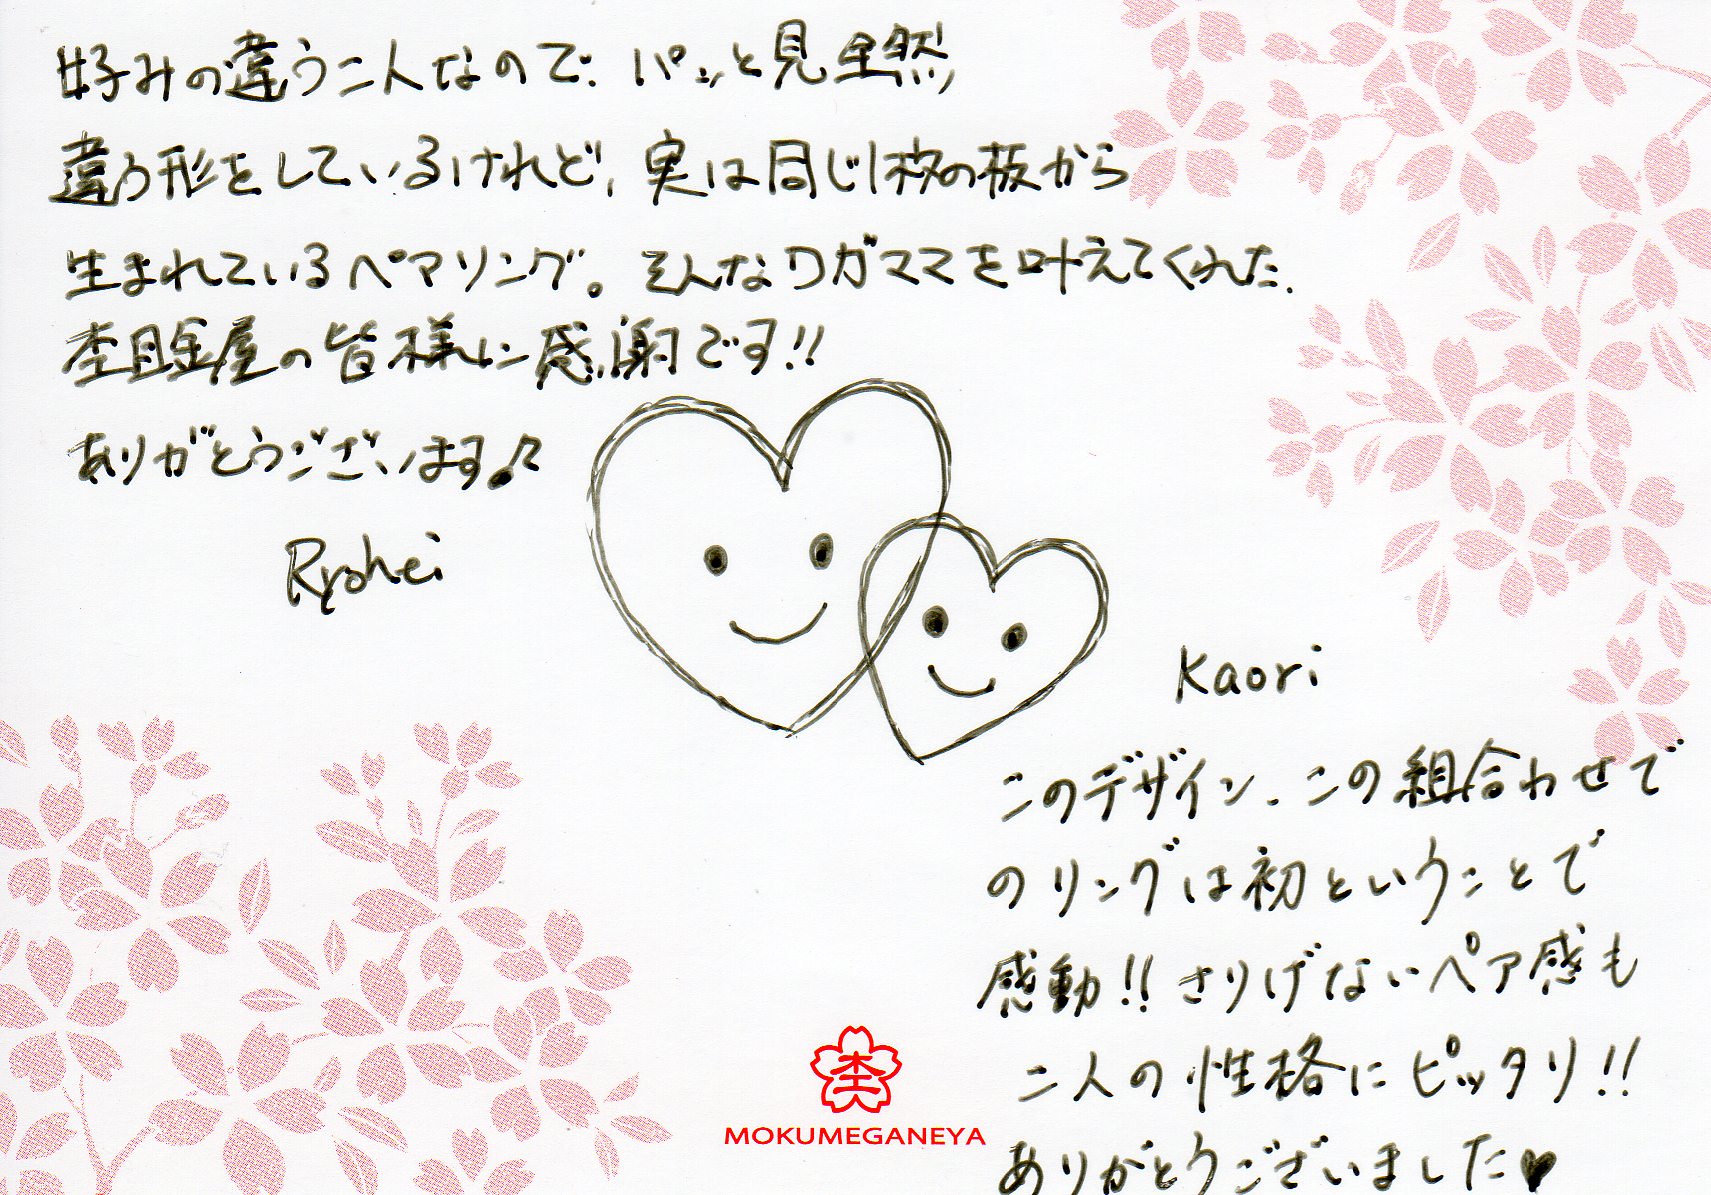 好みの違う二人なので、パッと見全然
違う形をしているけれど、実は同じ1枚の板から
生まれているペアリング。そんなワガママを叶えてくれた、
杢目金屋の皆様に感謝です!!
ありがとうございます♪
Ryohei
Kaori
このデザイン、この組合わせで
のリングは初ということで
感動!!さりげないペア感も
二人の性格にピッタリ!!
ありがとうございました♥
杢
MOKUMEGANEYA